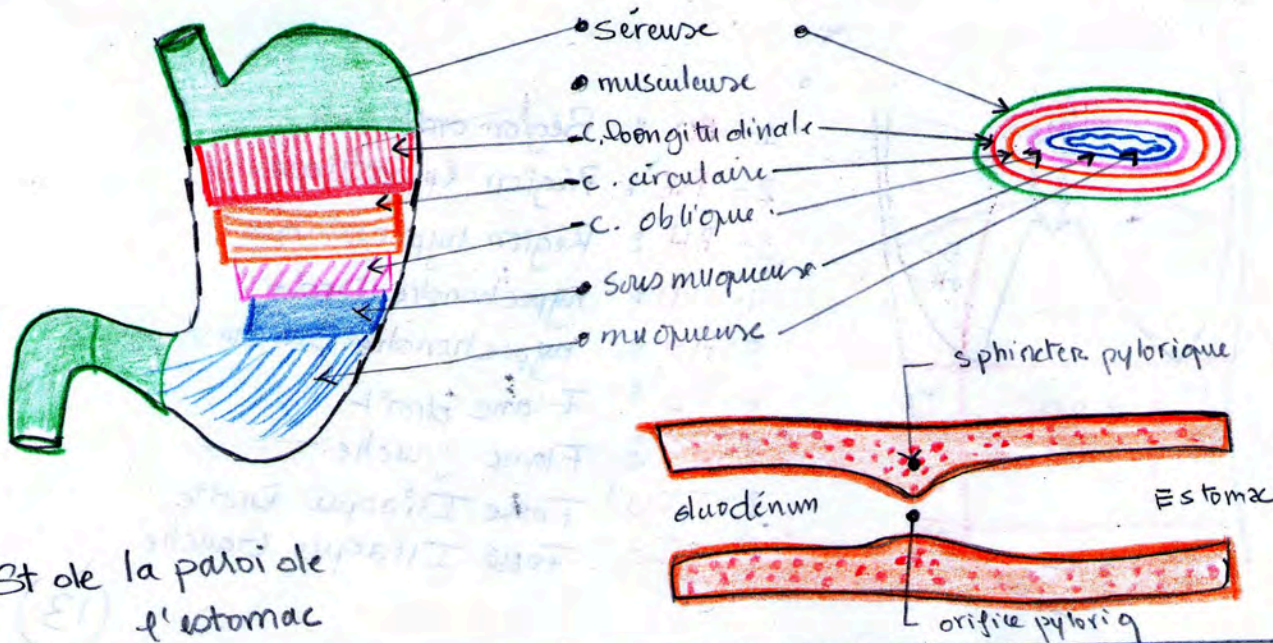 Séreuse
musculeuse
- C. Longitudinale
- c. circulaire
- c. oblique
Sous muqueuse
muqueuse
sphincter pylorique
duodénum
Estomac
orifice pyloriq
St de la paroi de
l'estomac